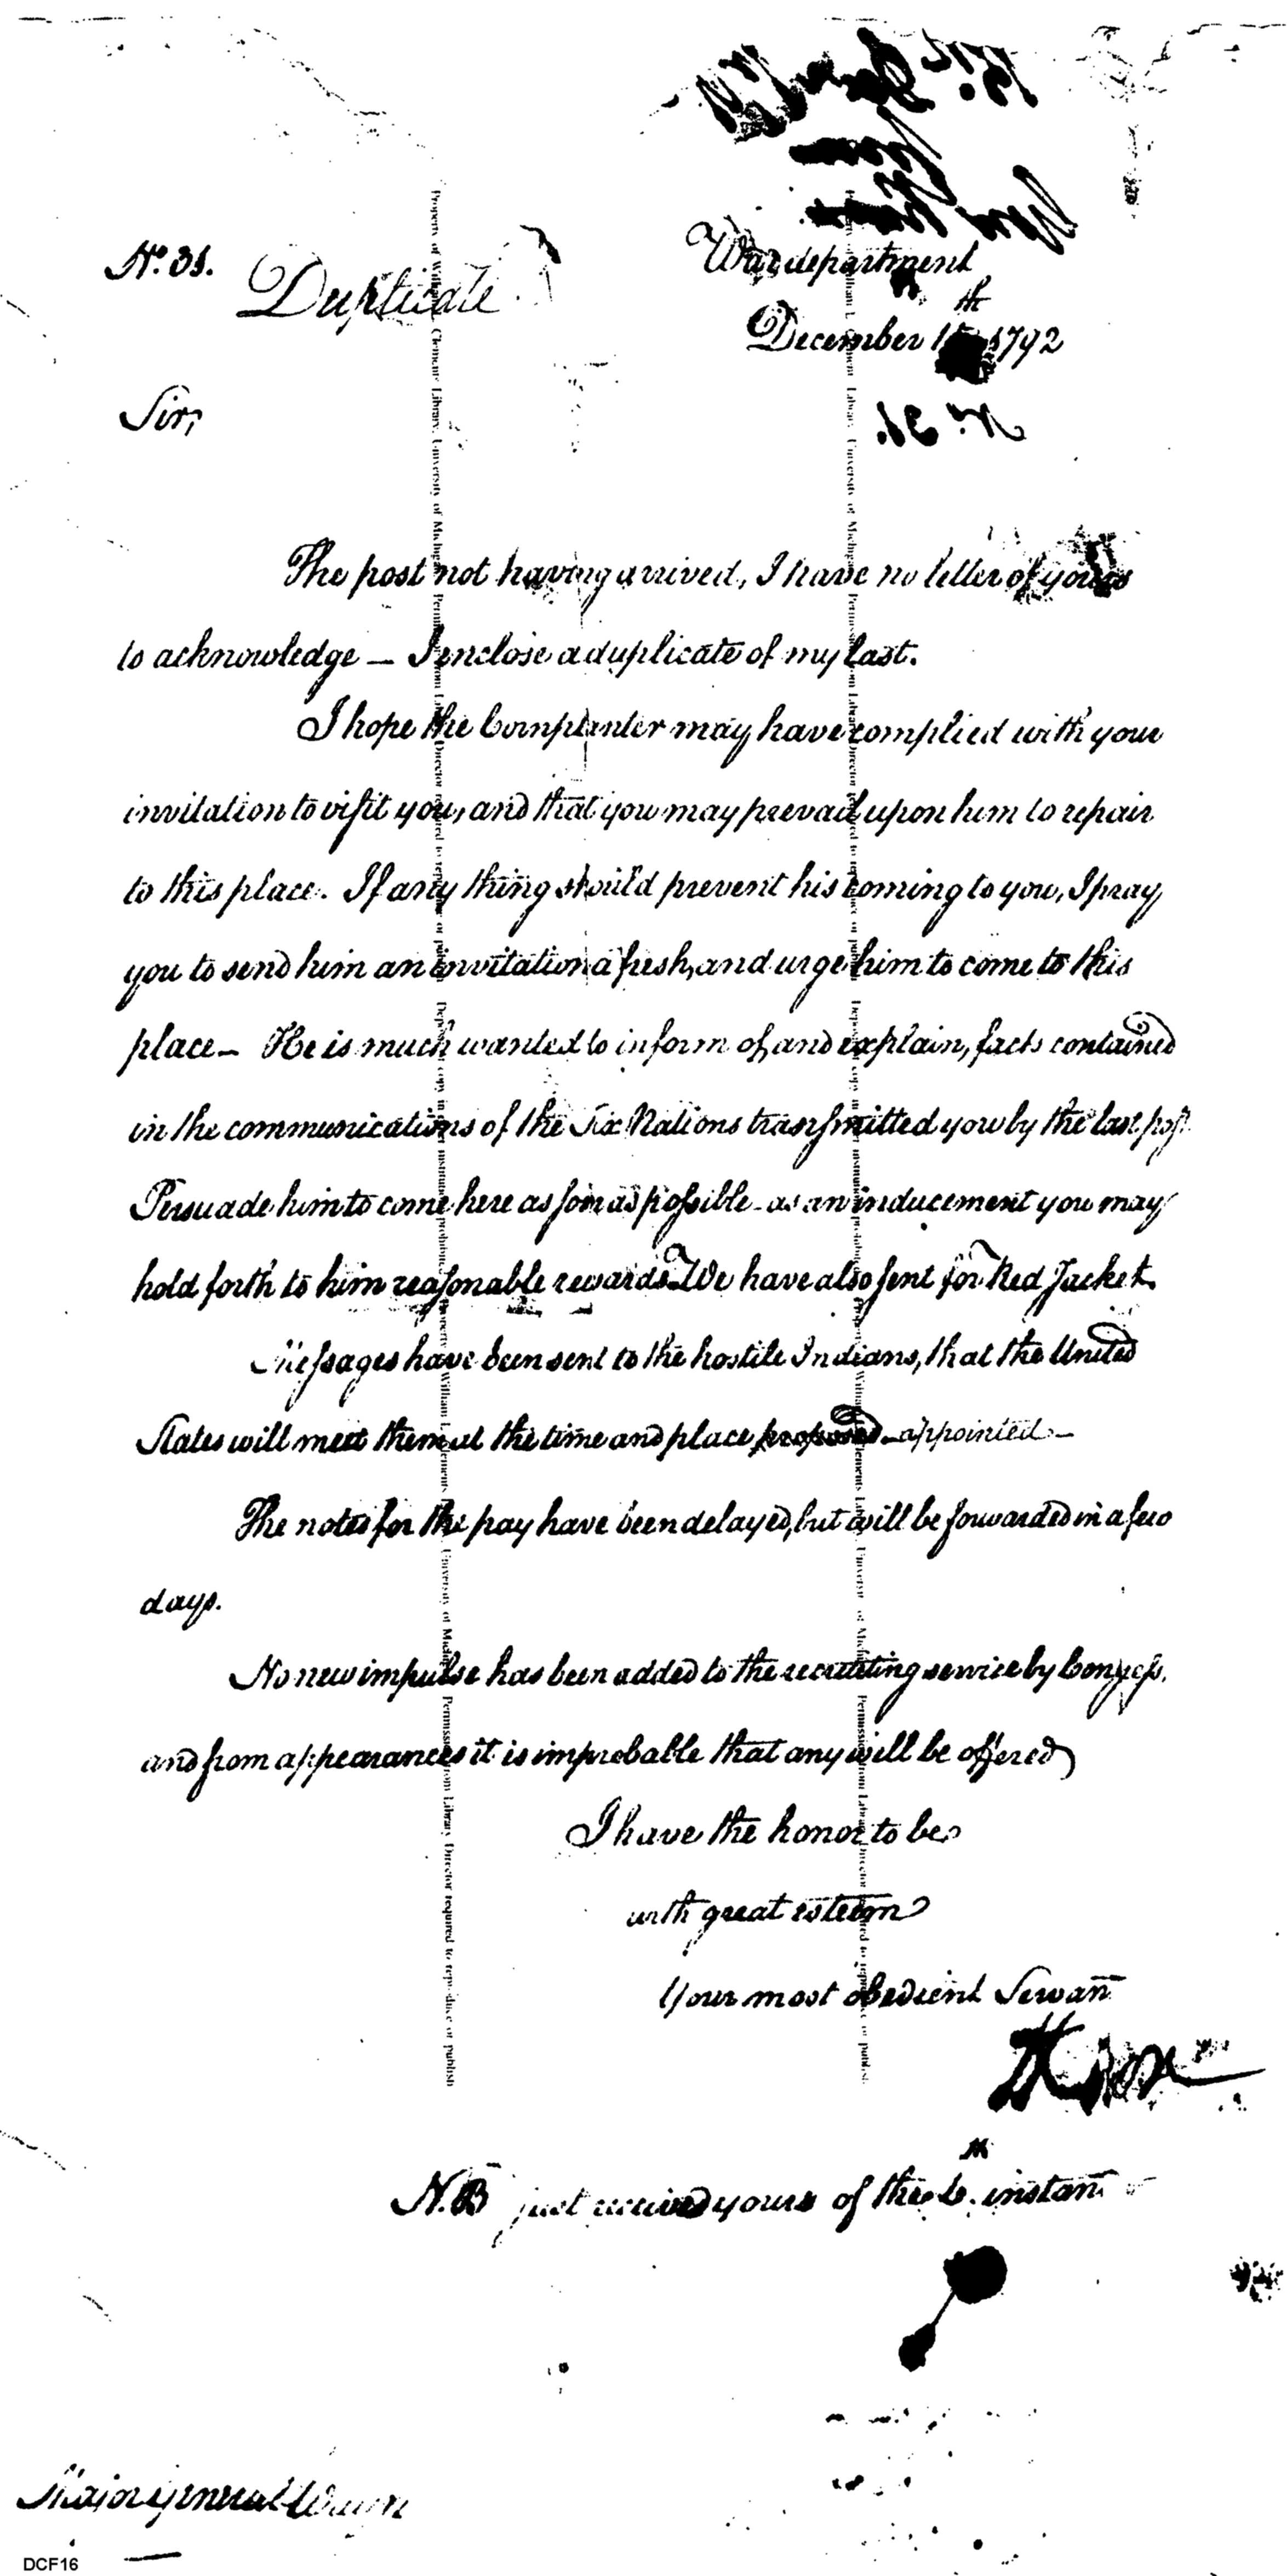 No. 31.
Duplicate
War department
December 15th 1792
Sir,
The post not having arrived, I have no letter of yours
to acknowledge — I enclose a duplicate of my last.
I hope the Cornplanter may have complied with your
invitation to visit you, and that you may prevail upon him to repair
to this place. If any thing should prevent his coming to you, I pray
you to send him an invitation afresh, and urge him to come to this
place — He is much wanted to inform of, and explain, facts contained
in the communications of the Six Nations transmitted you by the last post
Persuade him to come here as soon as possible — as an inducement you may
hold forth to him reasonable rewards. We have also sent for Red Jacket.
Messages have been sent to the hostile Indians, that the United
States will meet them at the time and place proposed — appointed —
The notes for the pay have been delayed, but will be forwarded in a few
days.
No new impulse has been added to the recruiting service by Congress,
and from appearances it is improbable that any will be offered
I have the honor to be
with great esteem
Your most obedient Servant
H Knox
N.B just received yours of the 6th. instant
Major General Wayne
DCF16